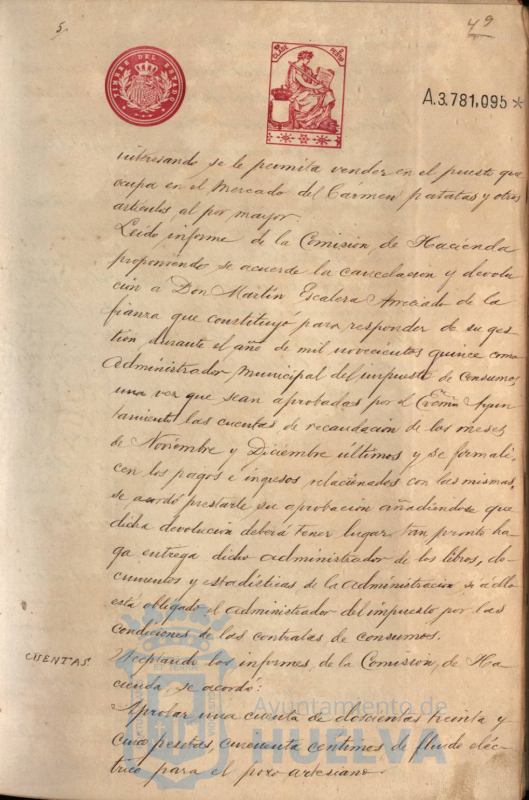 5.
49
TIMBRE DEL ESTADO
CLASE
A.3.781,095*
interesando se le permita vender en el puesto que
ocupa en el Mercado del Cármen patatas y otros
artículos al por mayor.
Leido informe de la Comision de Hacienda
proponiendo se acuerde la cancelacion y devolu-
ción a Don Martin Escalera Preciado de la
fianza que constituyó para responder de su ges-
tión durante el año de mil novecientos quince como
Administrador Municipal del impuesto de Consumos,
una vez que sean aprobadas por el Excmo Ayun-
tamiento las cuentas de recaudación de los meses
de Noviembre y Diciembre últimos y se formali-
cen los pagos e ingresos relacionados con las mismas,
se acordó prestarle su aprobación añadiendose que
dicha devolución deberá tener lugar tan pronto ha-
ga entrega dicho administrador de los libros, do-
cumentos y estadísticas de la Administración si a ello
está obligado el administrador del impuesto por las
condiciones de las contratas de consumos.
CUENTAS.
Aceptando los informes, de la Comision, de Ha-
cienda, se acordó:
Aprobar una cuenta de doscientas treinta y
cinco pesetas, cincuenta centimos de fluido eléc-
trico para el pozo artesiano.
Ayuntamiento de
HUELVA